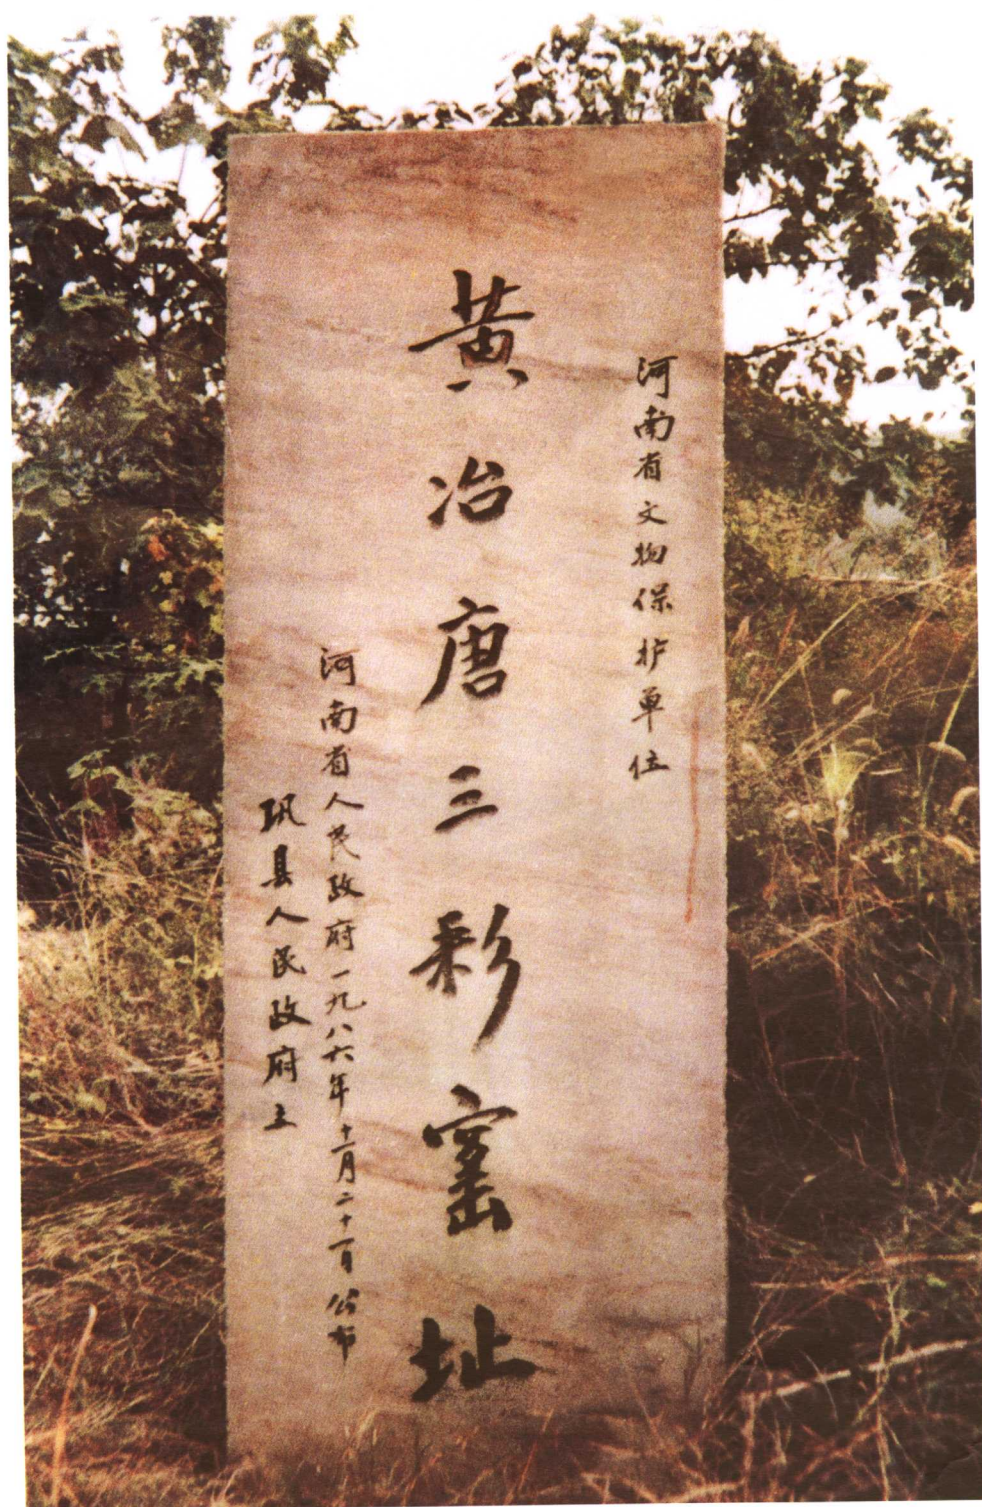 河南省文物保护单位
黄冶唐三彩窑址
河南省人民政府一九八六年十一月二十一日公布
巩县人民政府立